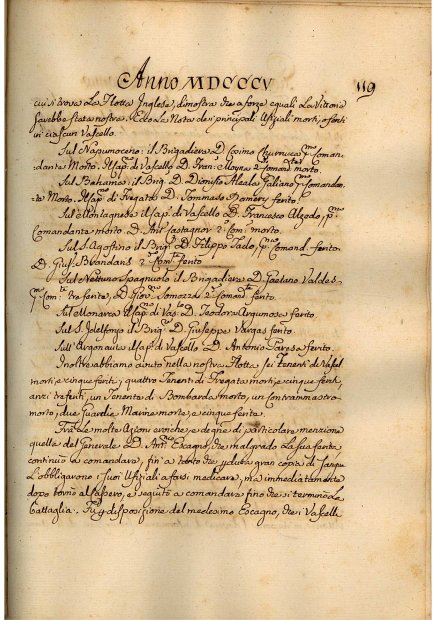 Anno MDCCCV
119
cui si trova La Flotta Inglese, dimostra che a forze equali La Vittoria
sarebbe stata nostra. Ecco La Nota dei principali Ufiziali morti, o feriti
in ciascun Vascello.
Sul Napumoceno: il Brigadiere D. Cosimo Churruca pmo Coman-
dante Morto. Il Cap. di Vascello D. Fran. Moyna 2o Comandte morto.
Sul Bahama: il Brig. D. Dionisio Alcala Galiano pmo Comandan-
te Morto. Il Capo di Fregata D. Tommaso Romery ferito.
Sul Montagnese il Cap. di Vascello D. Francesco Alzedo, pmo
Comandante morto. D. Anto Castagnos 2o Come morto.
Sul S. Agostino il Brig. D. Filippo Cado, pmo Comand. ferito.
D. Gius. Brandaris 2o Comte ferito
Sul Nettuno Spagnuolo il Brigadiere D. Gaetano Valdes
pmo Com. tre ferite, D. Giov. Somozza 2o Comandte ferito.
Sul Monarca Il Cap. di Vas. D. Teodoro Argumosa ferito.
Sul S. Ildelfonso il Brig. D. Giuseppe Vargas ferito.
Sull' Argonauta il Cap. di Vascello D. Antonio Paresa ferito.
Inoltre abbiamo avuto nella nostra Flotta, sei Tenenti di Vascel.
morti, e cinque feriti, quattro Tenenti di Fregata morti, e cinque feriti,
anzi trafeuti, un Tenente di Bombarda morto, un Contrammastro
morto, due Guardie Marine morte, e cinque ferite.
Tra Le molte Azioni eroiche, e degne di particolare menzione
quella del Generale D. Anto Escagno, che malgrado La sua ferita
continuò a comandare, fin' a tanto che perduta gran copia di sangue
L'obbligarono i suoi Ufiziali a farsi medicare, ma immediatamente
dopo tornò al Cassero, e seguitò a comandare fino che si terminò La
battaglia. Fu p disposizione del medesimo Escagno, che i Vascelli